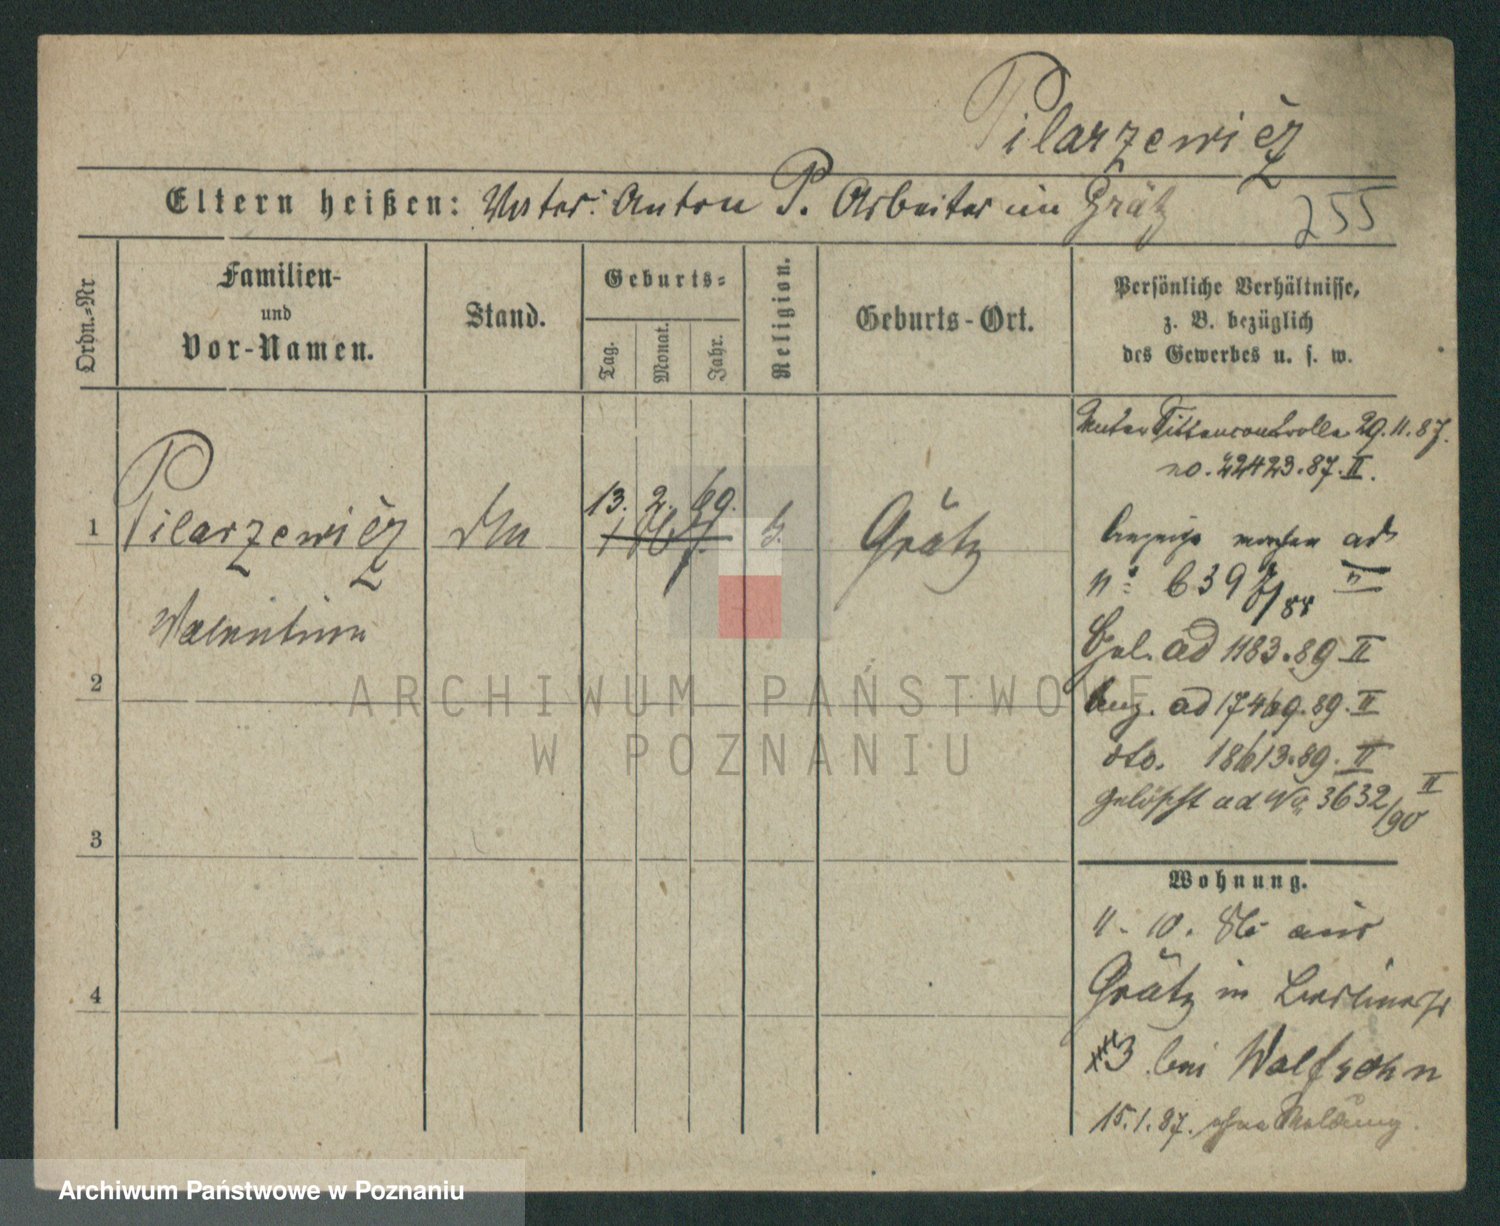 Pilarzewicz
Eltern heißen: Vater: Anton P. Arbeiter in Grätz
255
Ordn.-Nr
Familien-
und
Vor-Namen.
Stand.
Geburts-
Tag.
Monat.
Jahr.
Religion.
Geburts-Ort.
Persönliche Verhältnisse,
z. B. bezüglich
des Gewerbes u. s. w.
Unter Sittencontrolle 29.11.87.
no. 22423.87.II.
1
Pilarzewicz
13. 2. 69.
Grätz
Valentina
ad
n° 6397/88 II
Gel. ad 1183.89 II
Anz. ad 17469.89. II
dto. 18613.89. II
gelöscht ad No 3632/90 II
2
3
4
Wohnung.
11. 10. 86 aus
Grätz in Berlinerstr
3 bei Wolfsohn
15.1.87. ohne Meldung.
ARCHIWUM PAŃSTWOWE
W POZNANIU
Archiwum Państwowe w Poznaniu